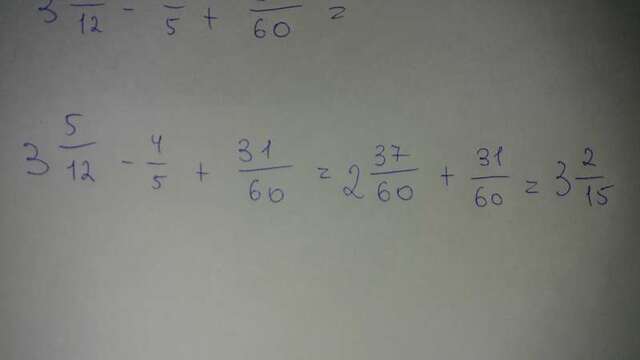 3 /12 - /5 + /60 =
3 5/12 - 4/5 + 31/60 = 2 37/60 + 31/60 = 3 2/15